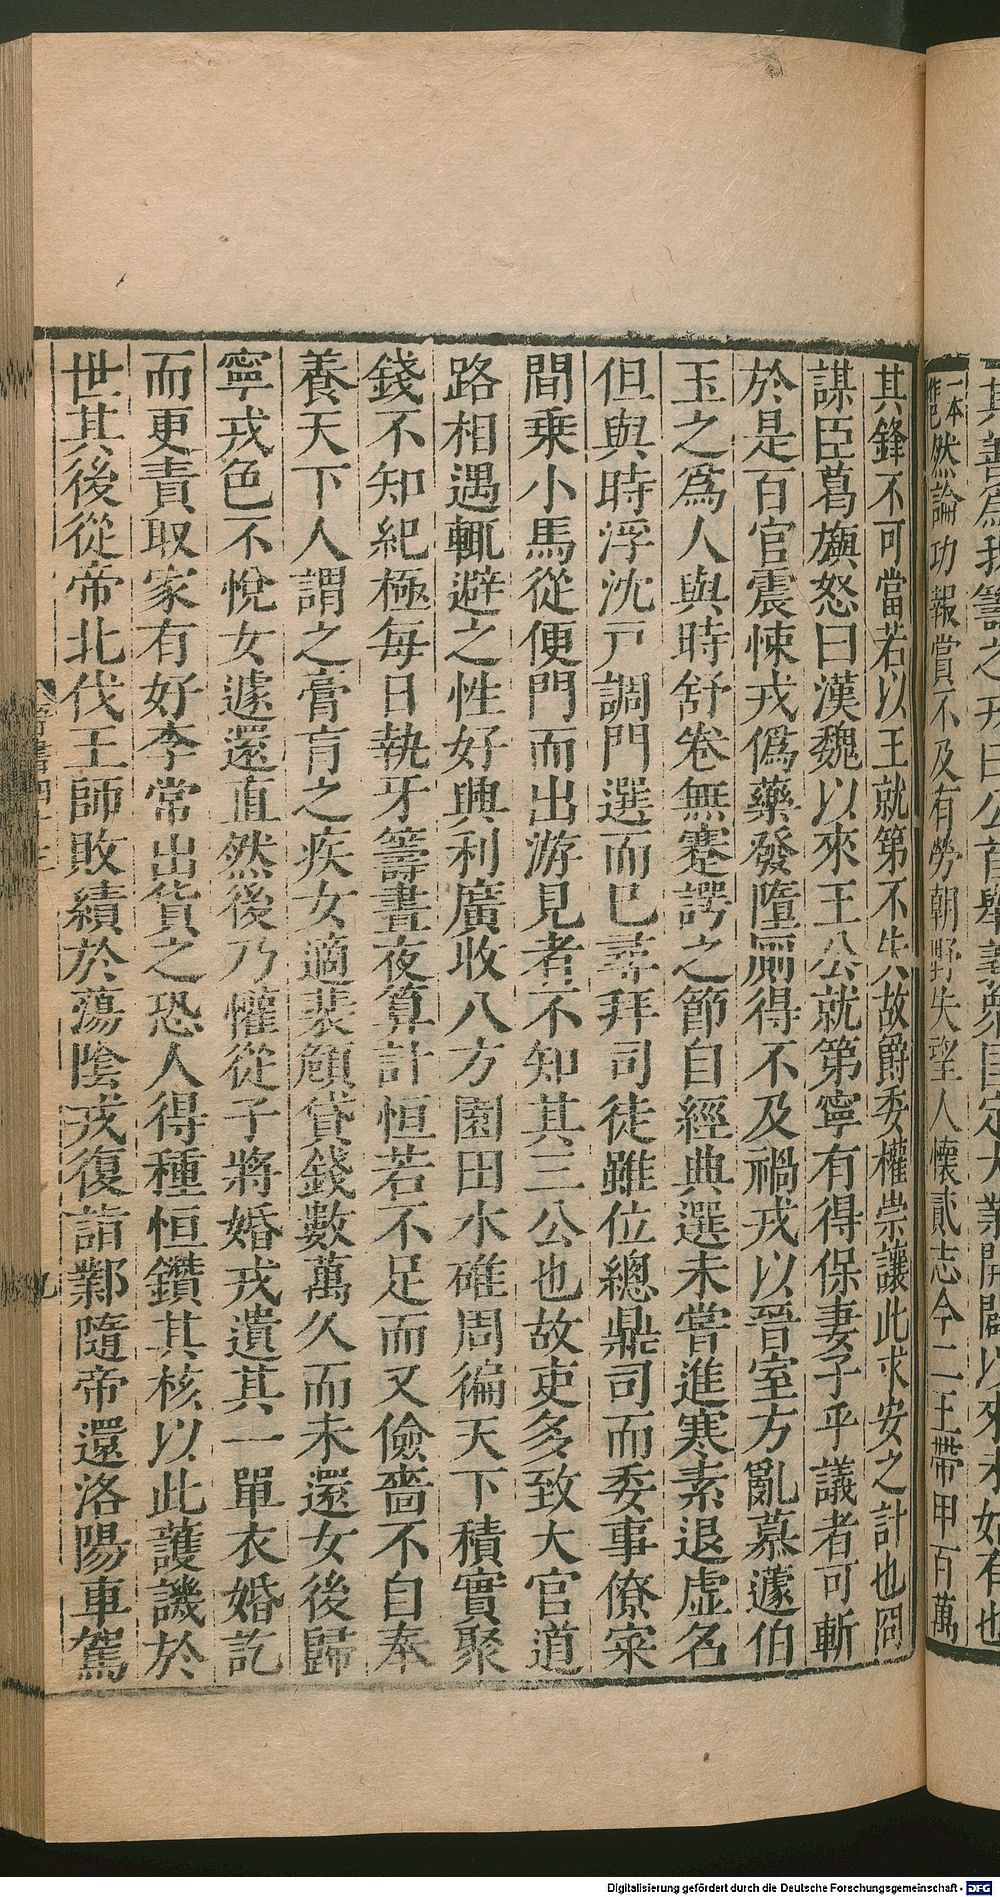 一本作已然論功報賞不及有勞朝野失望人懷貳志今二王帶甲百萬
其鋒不可當若以王就第不失故爵委權崇讓此求安之計也冏
謀臣葛旟怒曰漢魏以來王公就第寧有得保妻子乎議者可斬
於是百官震悚戎僞藥發墮厠得不及禍戎以晉室方亂慕蘧伯
玉之爲人與時舒卷無蹇諤之節自經典選未嘗進寒素退虛名
但與時浮沈戸調門選而已尋拜司徒雖位總鼎司而委事僚寀
間乗小馬從便門而出游見者不知其三公也故吏多致大官道
路相遇輒避之性好興利廣收八方園田水碓周徧天下積實聚
錢不知紀極每日執牙籌晝夜算計恒若不足而又儉嗇不自奉
養天下人謂之膏肓之疾女適裴頠貸錢數萬久而未還女後歸
寧戎色不悅女遽還直然後乃懽從子將婚戎遺其一單衣婚訖
而更責取家有好李常出貨之恐人得種恒鑽其核以此護譏於
世其後從帝北伐王師敗績於蕩陰戎復詣鄴隨帝還洛陽車駕
Digitalisierung gefördert durch die Deutsche Forschungsgemeinschaft - DFG